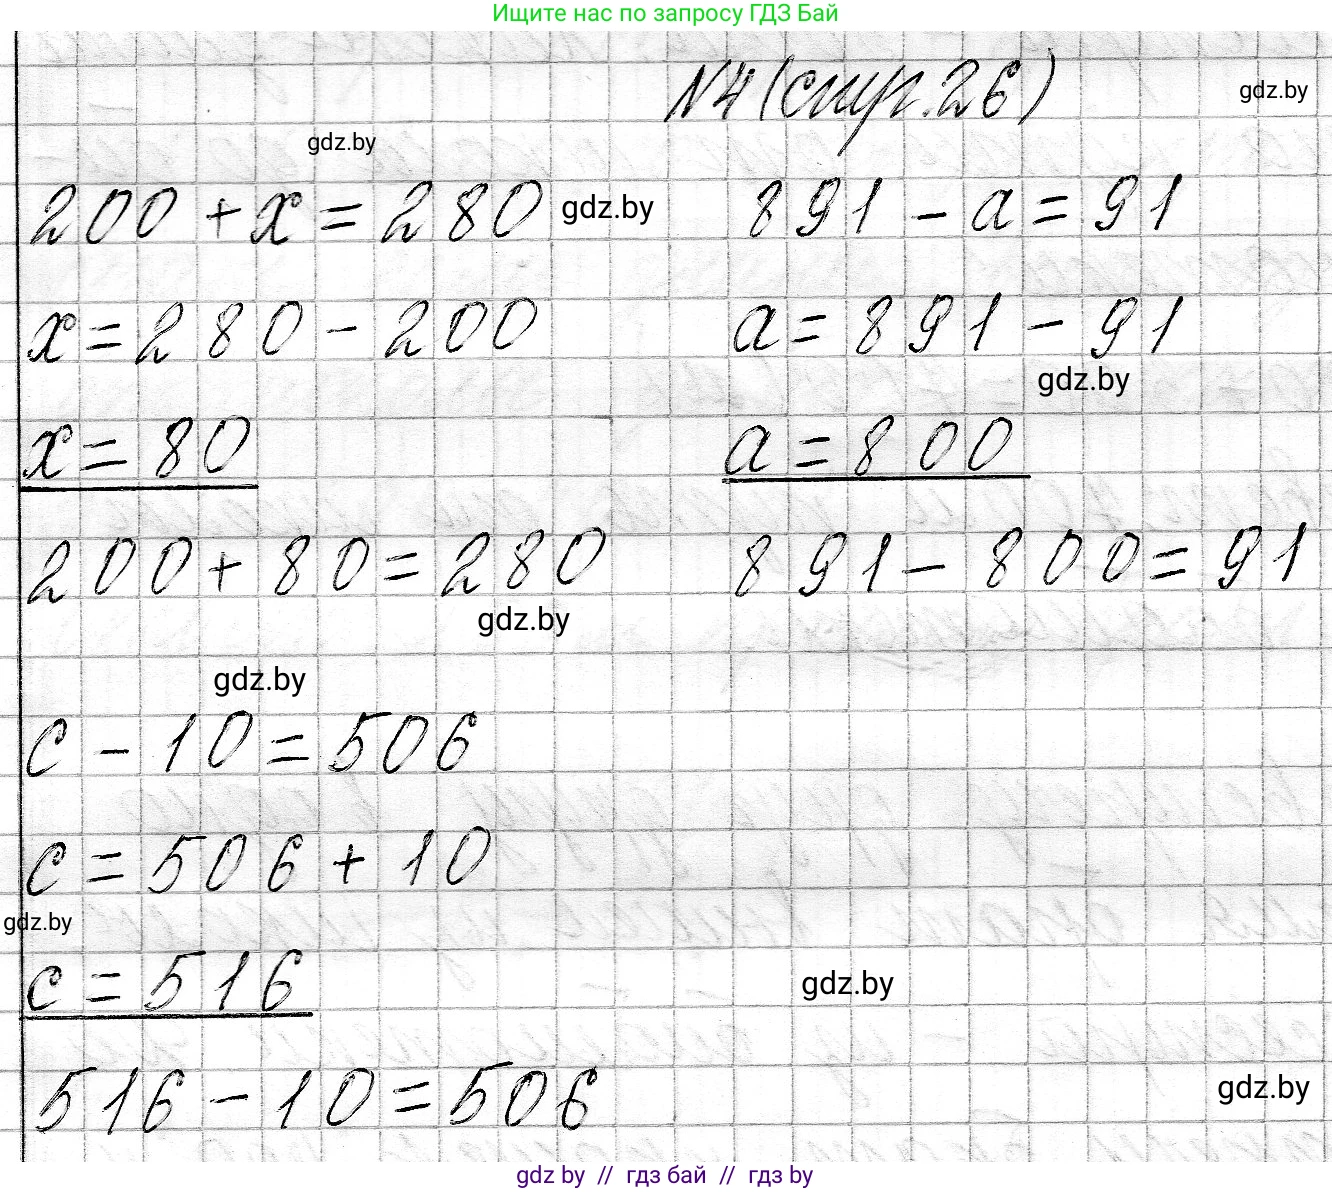 Ищите нас по запросу ГДЗ Бай
N4 (стр. 26)
gdz.by
gdz.by
200 + x = 280
gdz.by
891 - a = 91
x = 280 - 200
a = 891 - 91
gdz.by
x = 80
a = 800
200 + 80 = 280
891 - 800 = 91
gdz.by
gdz.by
c - 10 = 506
c = 506 + 10
gdz.by
c = 516
gdz.by
516 - 10 = 506
gdz.by
gdz by // гдз бай // гдз by